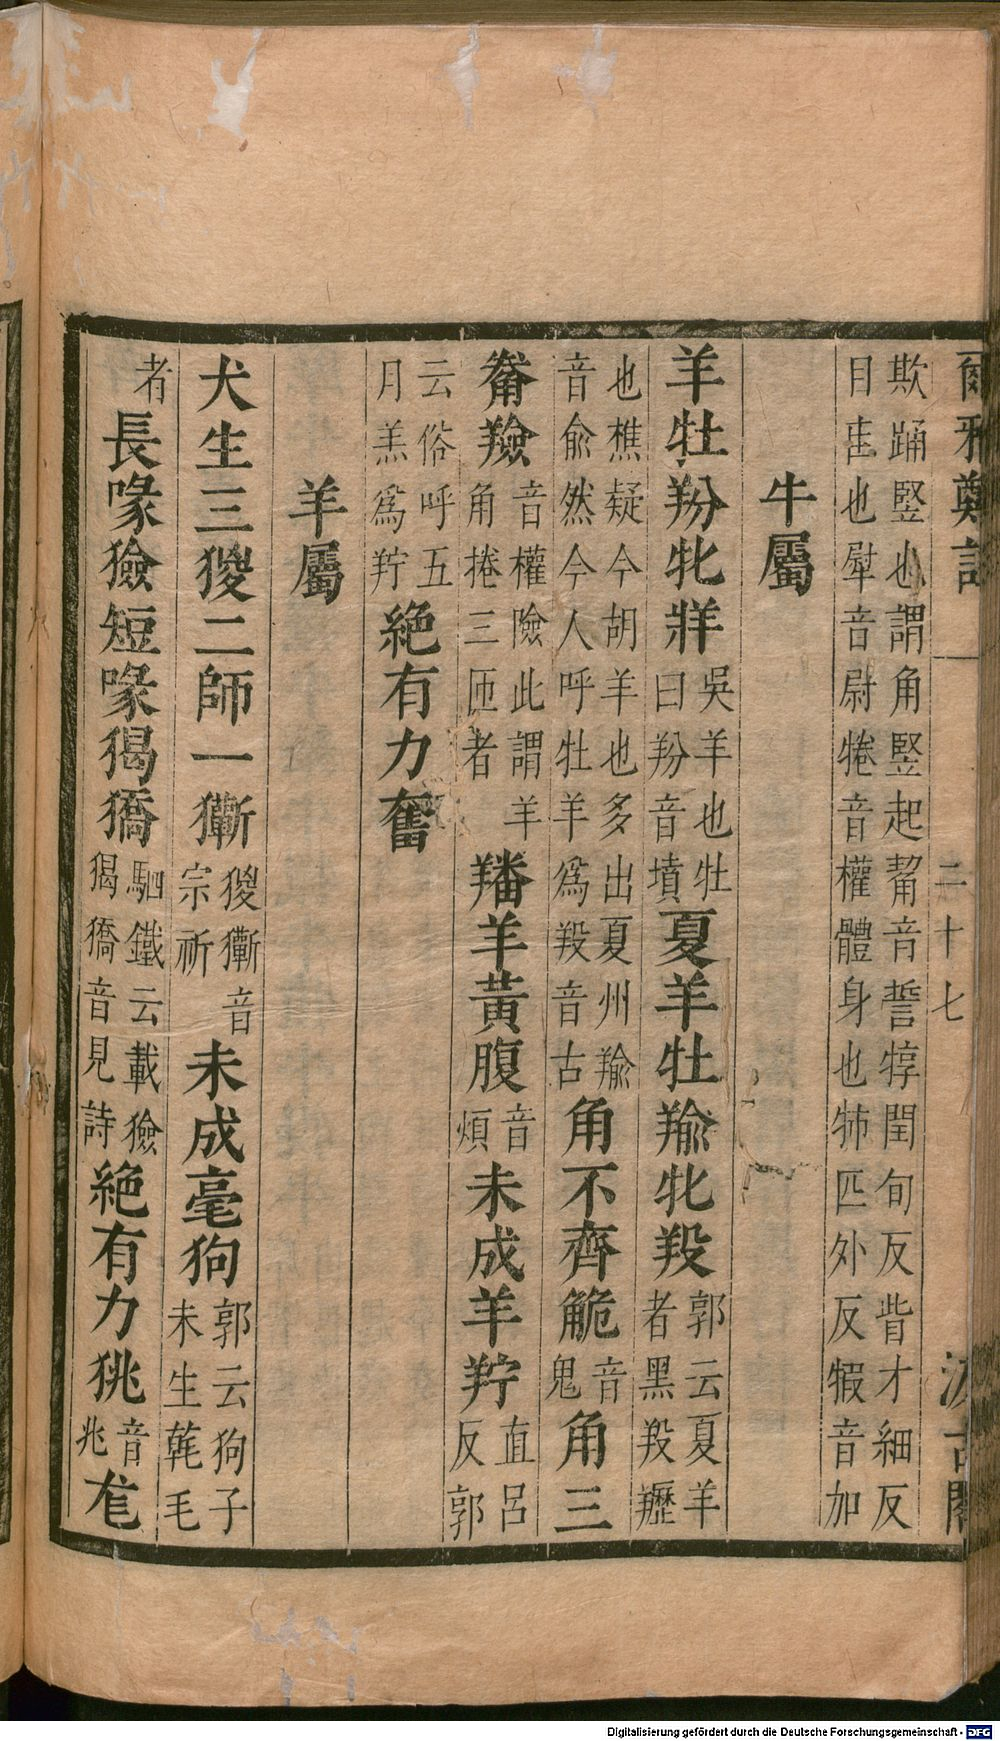 爾雅鄭註 二十七 汲古閣
欺踊竪也謂角竪起觢音誓犉閏旬反眥才細反
目眶也犚音尉犈音權體身也㸬匹外反犌音加
牛屬
羊牡羒牝牂吳羊也牡曰羒音墳夏羊牡羭牝羖郭云夏羊者黑羖䍽
也樵疑今胡羊也多出夏州羭音俞然今人呼牡羊為羖音古角不齊觤音鬼角三
觠羷音權險此謂羊角捲三匝者羳羊黃腹音煩未成羊羜直呂反郭
云俗呼五月羔為羜絕有力奮
羊屬
犬生三猣二師一玂猣玂音宗祈未成毫狗郭云狗子未生𣯶毛
者長喙獫短喙猲獢駟鐵云載獫猲獢音見詩絕有力狣音兆尨
Digitalisierung gefördert durch die Deutsche Forschungsgemeinschaft - DFG